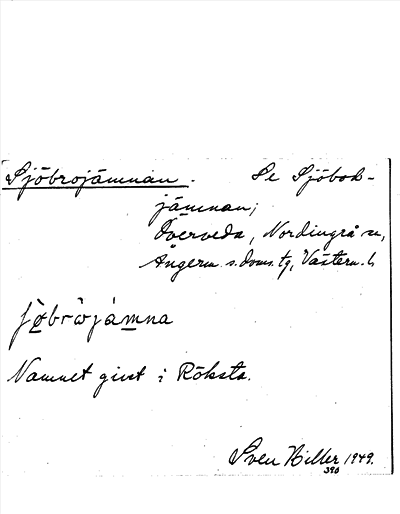 Sjöbrojämnan. Se Sjöbok-
jämnan;
Överveda, Nordingrå sn,
Ångerm. s. doms. tg, Västern. l.
Namnet givet i Röksta.
Sven Hiller 1949.
390